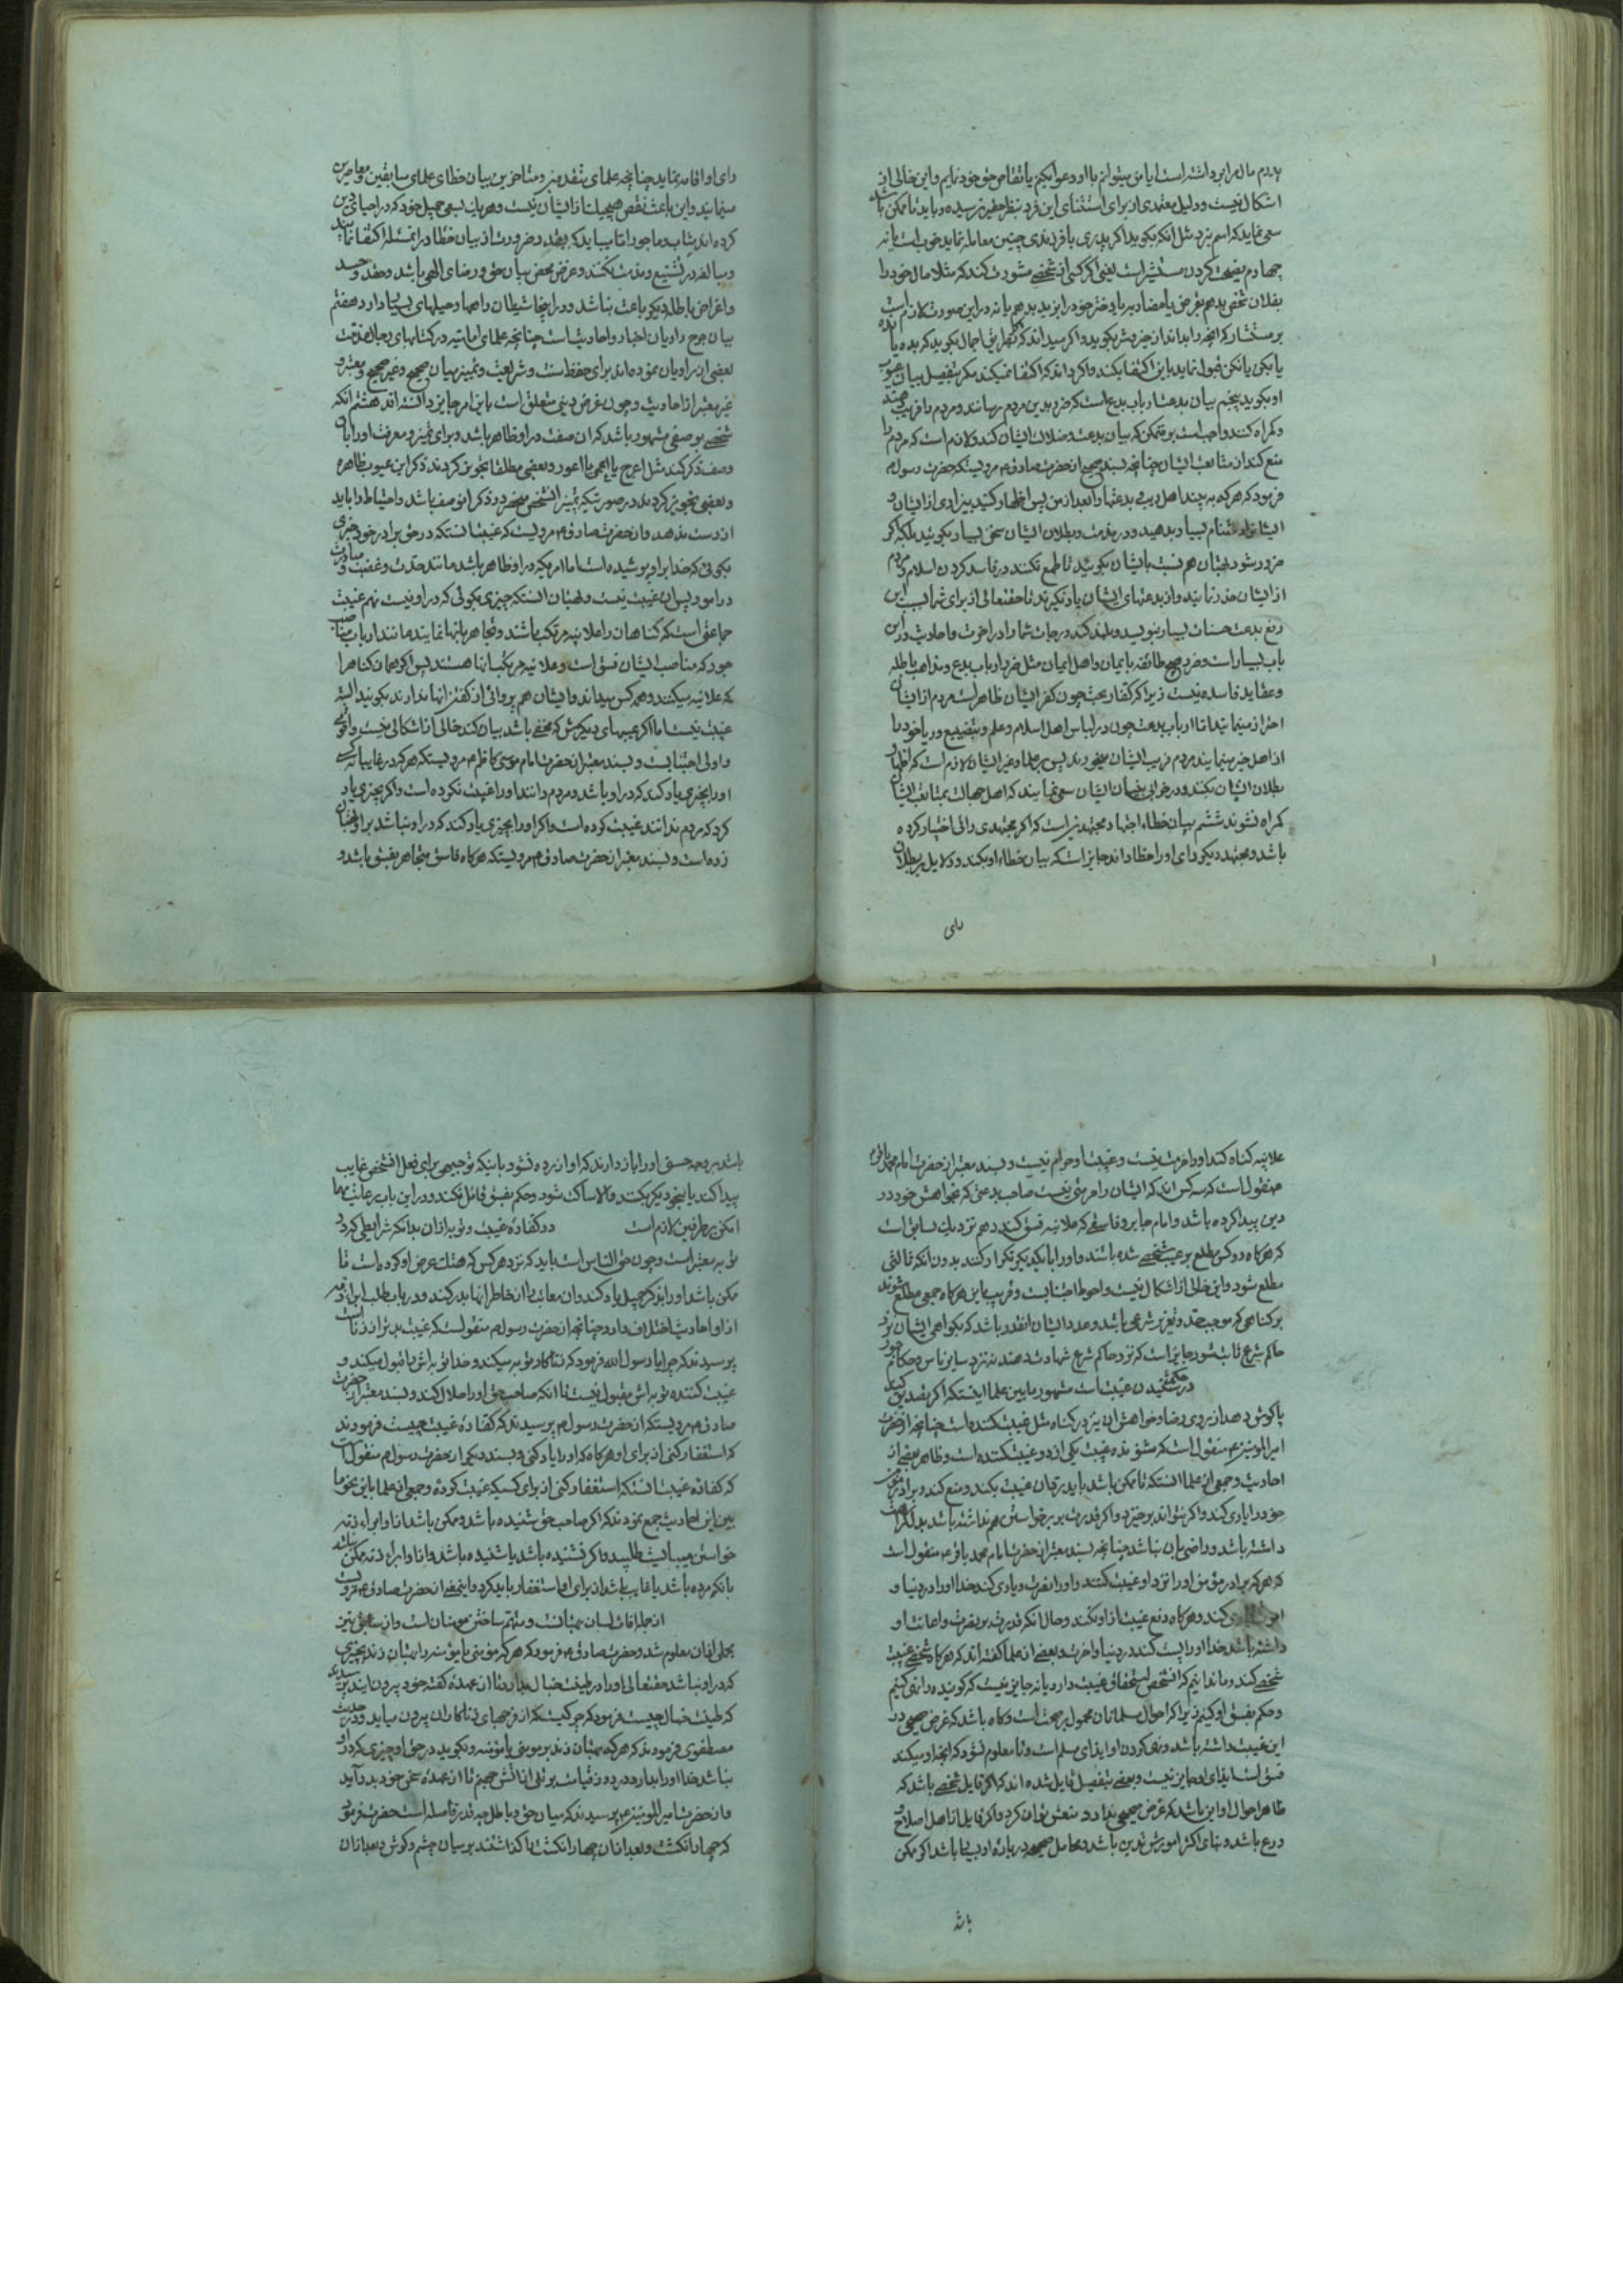 پدرم مال مرا برداشته است ایا من میتوانم با او دعوا بکنم یا تقاص حق خود نمایم و این خالی از
اشکال نیست و دلیل معتمدی از برای استثنای این فرد بنظر حقیر نرسیده و باید تا ممکن باشد
سعی نماید که اسم نبرد مثل انکه بگوید اگر پدری با فرزندی چنین معامله نماید خوب است یا نه
چهارم نصیحت کردن مستشیر است یعنی اگر کسی از شخصی مشورت کند که مثلا مال خود را
بفلان شخص بدهم بقرض یا مضاربه یا دختر خود را بزید بدهم یا نه در این صورت لازم است
بر مستشار که انچه را بداند از خیر و شر بگوید و اگر میداند که بطریق اجمال بگوید که بده یا نده
یا بکن یا نکن قبول نماید باین اکتفا بکند و اگر داند که اکتفا نمیکند مگر بتفصیل بیان عیوب
او بگوید پنجم بیان بدعت ارباب بدعهاست که ضرر بدین مردم رسانند و مردم را فریب دهند
و گمراه کنند واجب است بر متمکن که بیان بدعت و ضلالت ایشان کند و لازم است که مردم را
منع کند از متابعت ایشان چنانچه بسند صحیح از حضرت صادق ع مرویست که حضرت رسول ص
فرمود که هرگاه به بیند اهل ریب و بدعتها را بعد از من پس اظهار کنید بیزاری از ایشان و
ایشانرا دشنام بسیار بدهید و در مذمت و بطلان ایشان سخن بسیار بگوئید بلکه اگر
ضرور شود بهتان هم نسبت بایشان بگوئید تا طمع نکنند در فاسد کردن اسلام و مردم
از ایشان حذر نمایند و از بدعتهای ایشان یاد نگیرند تا حقتعالی از برای شما بسبب این
رفع بدعت حسنات بسیار بنویسد و بلند کند درجات شما را در اخرت و احادیث در این
باب بسیار است و ضرر هیچ طائفه بایمان و اهل ایمان مثل ضرر ارباب بدع و مذاهب باطله
و عقاید فاسده نیست زیرا که کفار بحت چون کفر ایشان ظاهر است مردم از ایشان
احتراز مینمایند اما ارباب بدعت چون در لباس اهل اسلام و علم و بتصنع و ریا خود را
از اهل خیر مینمایند مردم فریب ایشان میخورند پس بر علما و غیر ایشان لازم است که اظهار
بطلان ایشان بکنند و در خرابی بنیان ایشان سعی نمایند که اهل جهالت بمتابعت ایشان
گمراه نشوند ششم بیان خطاء اجتهاد مجتهدیست که اگر مجتهدی رائی اختیار کرده
باشد و مجتهد دیگر رای او را خطا داند جایز است که بیان خطاء او بکند و دلایل بر بطلان
رای
رای او اقامه نماید چنانچه علمای متقدمین و متاخرین بیان خطای علمای سابقین و معاصرین
مینمایند و این باعث نقص هیچیک از ایشان نیست و هر یک بسعی جمیل خود که در احیای دین
کرده اند مثاب و ماجورند اما میباید که بقدر ضرورت از بیان خطا در انمسئله اکتفا نمایند
و مبالغه در تشنیع و مذمت نکنند و غرض محض بیان حق و رضای الهی باشد و حقد و حسد
و اغراض باطله دیگر باعث نباشد و در اینجا شیطان را راهها و حیلهای بسیار دارد هفتم
بیان جرح راویان اخبار و احادیث است چنانچه علمای امامیه در کتابهای رجال مذمت
بعضی از راویان نموده اند برای حفظ سنت و شریعت و تمییز میان صحیح و غیر صحیح و معتبر و
غیر معتبر از احادیث و چون غرض دینی متعلق است باین امر جایز دانسته اند هشتم انکه
شخصی بوصفی مشهور باشد که ان صفت در او ظاهر باشد و برای تمیز و معرفت او را بان
وصف ذکر کند مثل اعرج یا اعمی یا اعور و بعضی مطلقا تجویز کردند ذکر این عیوب ظاهره
و بعضی تجویز کردند در صورتیکه تمیز انشخص منحصر در ذکر انوصف باشد و احتیاط را باید
از دست ندهد و از حضرت صادق ع مرویست که غیبت انستکه در حق برادر خود چیزی
بگوئی که خدا بر او پوشیده است اما امریکه در او ظاهر باشد مانند حدت و غضب و مبادرت
در امور پس ان غیبت نیست و بهتان انستکه چیزی بگوئی که در او نیست نهم غیبت
جماعتی است که گناهان را علانیه مرتکب باشند و تجاهر بانها نمایند مانند ارباب مناصب
جور که مناصب ایشان فسق است و علانیه مرتکب انها هستند پس اگر همان گناه را
که علانیه میکنند و همه کس میداند و ایشان هم پروائی از گفتن انها ندارند بگویند البته
غیبت نیست اما اگر عیبهای دیگرش که مخفی باشد بیان کند خالی از اشکالی نیست و اقوی
و اولی اجتنابست و بسند معتبر از حضرت امام موسی کاظم ع مرویستکه هر که در غایبانه کسی
او را بچیزی یاد کند که در او باشد و مردم دانند او را غیبت نکرده است و اگر بچیزی یاد
کرد که مردم ندانند غیبت کرده است و اگر او را بچیزی یاد کند که در او نباشد بر او بهتان
زده است و بسند معتبر از حضرت صادق ع مرویستکه هرگاه فاسق متجاهر بفسق باشد و
علانیه گناه کند او را حرمت نیست و غیبت او حرام نیست و بسند معتبر از حضرت امام محمد باقر ع
منقول است که سه کس اند که ایشان را حرمتی نیست صاحب بدعتی که بخواهش خود در
دین پیدا کرده باشد و امام جابر و فاسقی که علانیه فسق کند دهم نزدیک بسابق است
که هرگاه دو کس مطلع بر عیب شخصی شده باشند و او را با یکدیگر تکرار کنند بدون انکه ثالثی
مطلع شود و این خالی از اشکال نیست و احوط اجتنابست و قریب باین هرگاه جمعی مطلع شوند
بر گناهی که موجب حد و تعزیر شرعی باشد و عدد ایشان انقدر باشد که بگواهی ایشان نزد
حاکم شرع ثابت شود جایز است که نزد حاکم شرع شهادت دهند نه نزد سایر ناس و حکام جور
در حکم شنیدن غیبت است مشهور مابین علما اینستکه اگر بقصد بدی کند
یا گوش دهد از روی رضا و خواهش ان نیز در گناه مثل غیبت کننده است چنانچه از حضرت
امیرالمومنین ع منقول است که شنونده غیبت یکی از دو غیبت کننده است و ظاهر بعضی از
احادیث و جمعی از علما انستکه تا ممکن باشد باید رد ان غیبت بکند و منع کند و برادر مومن
خود را یاری کند و اگر نتواند برخیزد و اگر قدرت بر برخواستن هم نداشته باشد بدل کراهت
داشته باشد و راضی بان نباشد چنانچه بسند معتبر از حضرت امام محمد باقر ع منقول است
که هر که برادر مومن او را نزد او غیبت کنند و او را نصرت و یاری کند خدا او را در دنیا و
اخرت یاری کند و هرگاه دفع غیبت از او نکند و حال انکه قدرت بر نصرت و اعانت او
داشته باشد خدا او را پست کند در دنیا و اخرت و بعضی از علما گفته اند که هرگاه شخصی غیبت
شخصی کند و ما ندانیم که انشخص استحقاق غیبت دارد یا نه جایز نیست که گوینده را نهی کنیم
و حکم بفسق او کنیم زیرا که احوال مسلمانان محمول بر صحت است و گاه باشد که غرض صحیحی در
این غیبت داشته باشد و نهی کردن او ایذای مسلم است و تا معلوم نشود که انچه او میکند
فسق است ایذای او جایز نیست و بعضی بتفصیل قایل شده اند که اگر قایل شخصی باشد که
ظاهر احوال او این باشد که غرض صحیحی ندارد منعش توان کرد و اگر قایل از اهل اصلاح و
ورع باشد و بنای اکثر امورش بتدین باشد و محامل صحیحه در باره او بیجا باشد اگر ممکن
باشد
باشد بر وجه حسن او را باز دارند که او ازرده نشود باینکه توجیهی برای فعل انشخص غایب
پیدا کند یا بنحو دیگر بکند و الا ساکت شود و حکم بفسق قائل نکند و در این باب رعایت مهما
امکن بر طرفین لازم است در کفاره غیبت و توبه از ان بدانکه شرایطی که در
توبه معتبر است و چون حق الناس است باید که نزد هر کس که هتک عرض او کرده است تا
ممکن باشد او را بذکر جمیل یاد کند و ان معایب را از خاطر انها بدر کند و در باب طلب ابراء ذمه
از او احادیث اختلاف دارد چنانچه از حضرت رسول ص منقولست که غیبت بدتر از زنا است
پرسیدند که چرا یا رسول الله فرمود که زناکار توبه میکند و خدا توبه اش را قبول میکند و
غیبت کننده توبه اش مقبول نیست تا انکه صاحب حق او را حلال کند و بسند معتبر از حضرت
صادق ع مرویستکه از حضرت رسول ص پرسیدند که کفاره غیبت چیست فرمودند
که استغفار کنی از برای او هرگاه که او را یاد کنی و بسند دیگر از حضرت رسول ص منقول است
که کفاره غیبت انستکه استغفار کنی از برای کسیکه غیبت کرده و جمعی از علما باین نحو ما
بین این احادیث جمع نمودند که اگر صاحب حق شنیده باشد و ممکن باشد از او ابراء ذمه
خواستن میباید طلبید و اگر نشنیده باشد یا شنیده باشد و از او ابراء ذمه ممکن نباشد
بانکه مرده باشد یا غایب باشد از برای او استغفار باید کرد و اینمعنی از حضرت صادق ع مرویست
از جمله افات لسان بهتانست و متهم ساختن مومنان است و از سابق نیز
مجملی از ان معلوم شد و حضرت صادق ع فرمود که هر که مومنی یا مومنه را بهتان زند بچیزی
که در او نباشد حقتعالی او را در طینت خبال بدارد تا از عهده گفته خود بیرون اید پرسیدند
که طینت خبال چیست فرمود که چرکیست که از فرجهای زناکاران بیرون میاید و در حدیث
مصطفوی فرمودند که هر که بهتان زند بر مومنی یا مومنه و بگوید در حق او چیزی که در او
نباشد خدا او را بدارد در روز قیامت بر تلی از اتش جهیم تا از عهده سخن خود بدر آید
و از حضرت امیرالمومنین ع پرسیدند که میان حق و باطل چه قدر فاصله است حضرت فرمود
که چهار انگشت و بعد از ان چهار انگشت را گذاشتند بر میان چشم و گوش و بعد از ان